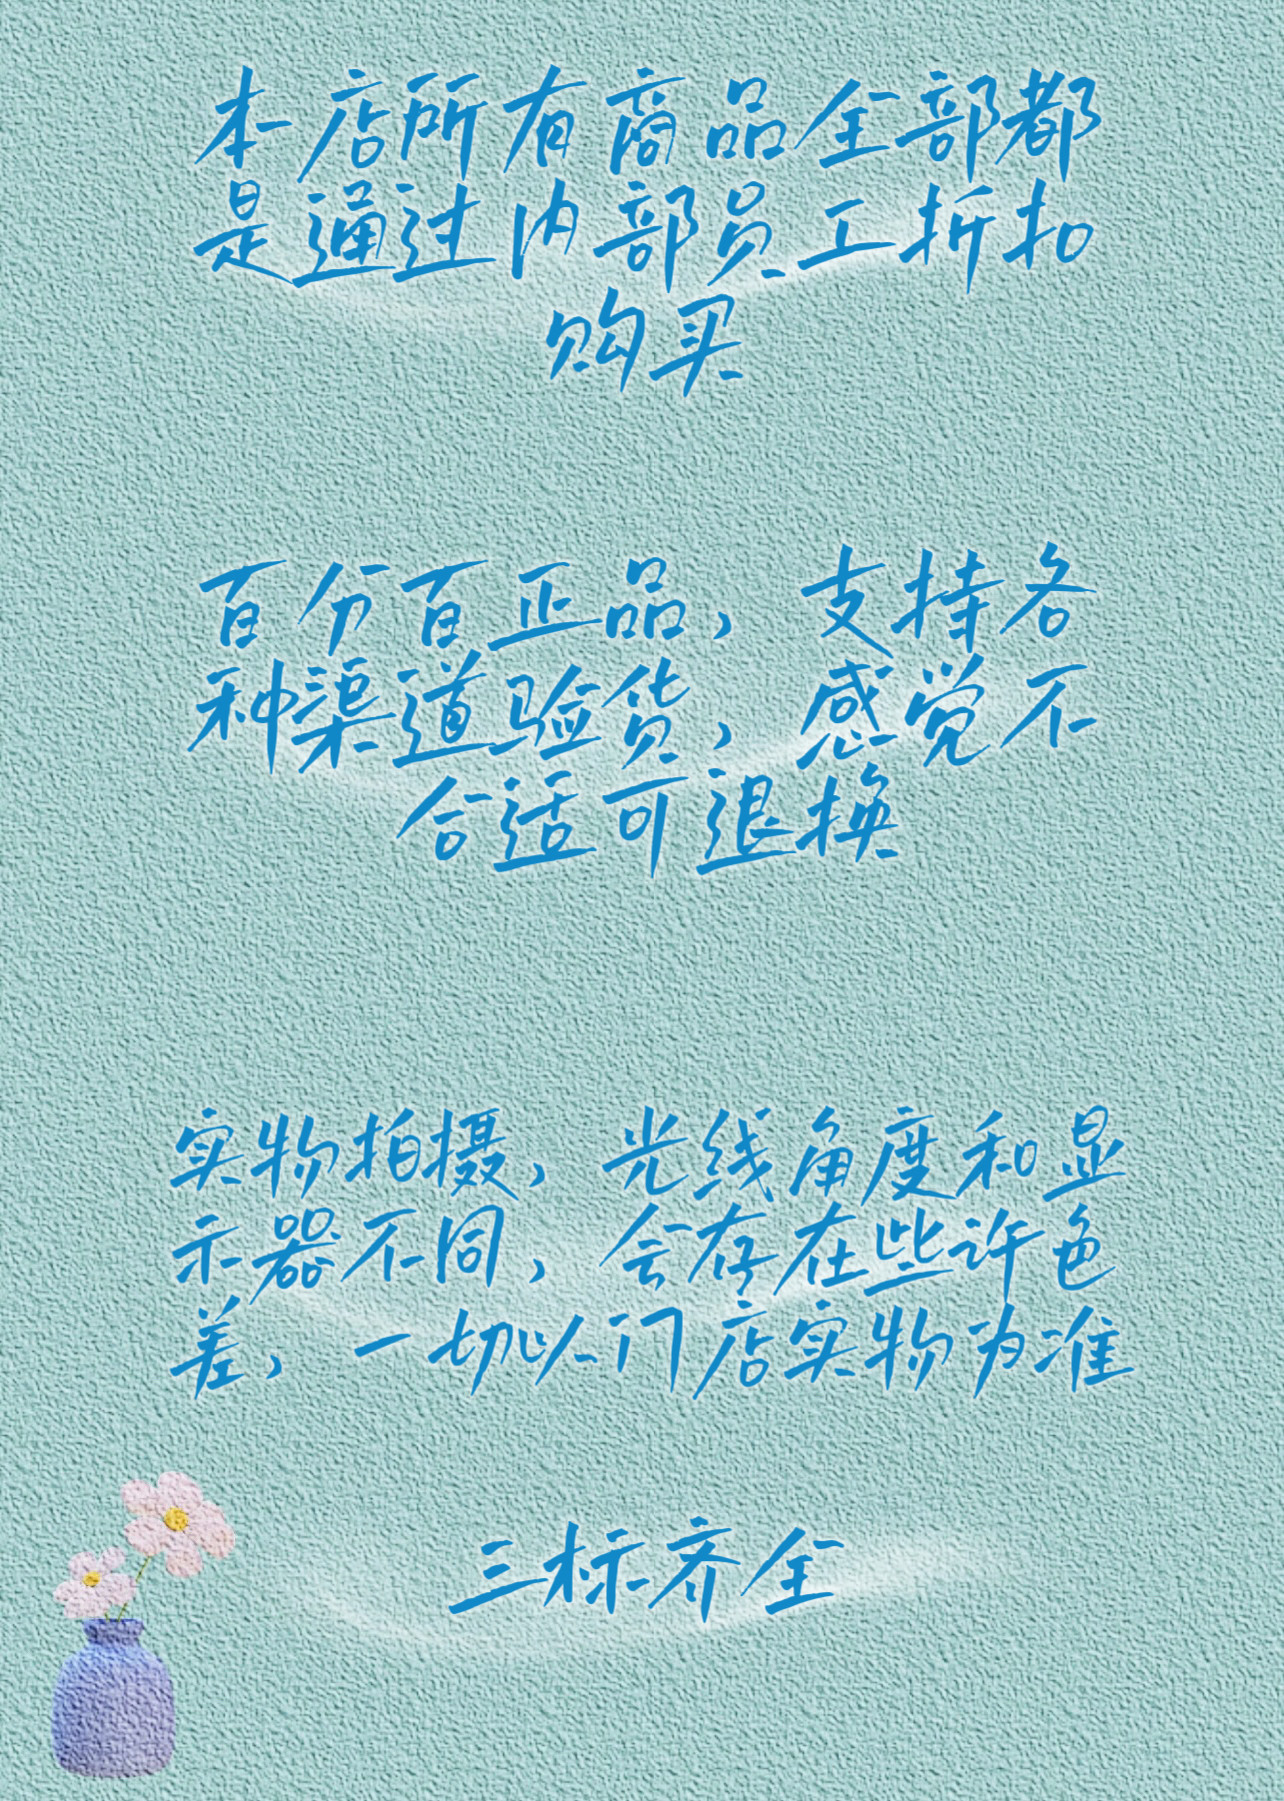 本店所有商品全部都
是通过内部员工折扣
购买
百分百正品，支持各
种渠道验货，感觉不
合适可退换
实物拍摄，光线角度和显
示器不同，会存在些许色
差，一切以门店实物为准
三标齐全